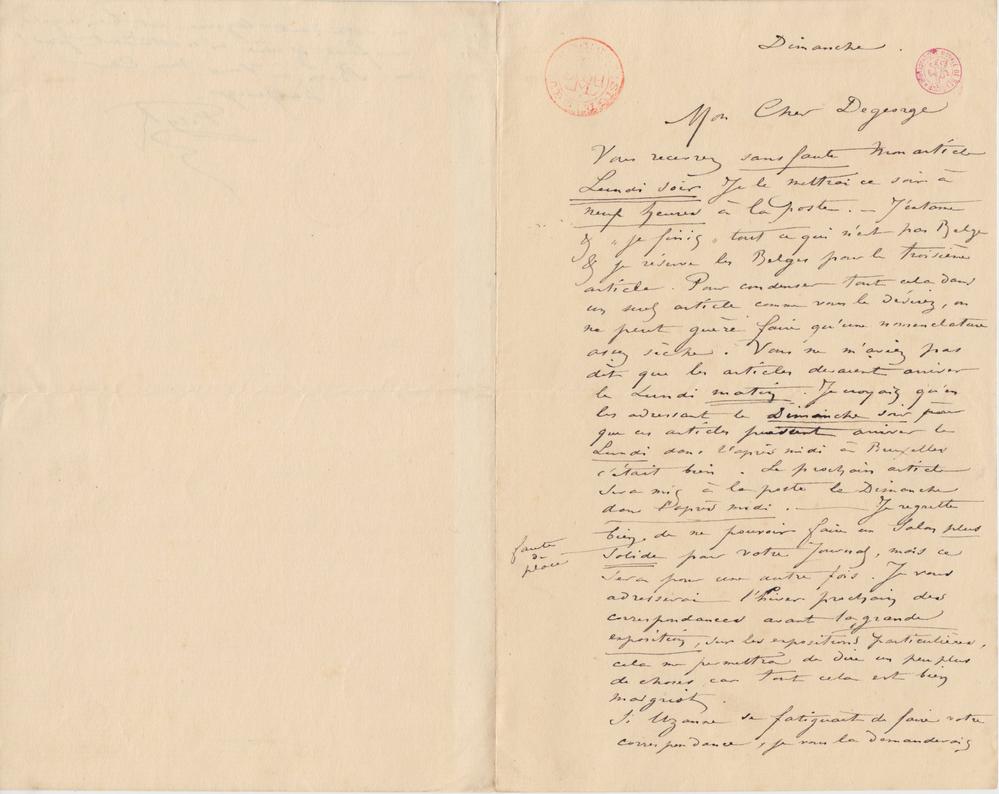 Dimanche.
Mon Cher Degeorge
Vous recevrez sans faute mon article
Lundi soir Je le mettrai ce soir à
neuf heures à la poste. — J'entame
& "je finis" tout ce qui n'est pas Belge
& je réserve les Belges pour le troisième
article. Pour condenser tout cela dans
un seul article comme vous le désirez, on
ne peut guère faire qu'une nomenclature
assez sèche. Vous ne m'aviez pas
dit que les articles devaient arriver
le Lundi matin. Je croyais qu'en
les adressant le Dimanche soir pour
que ces articles arriver le
Lundi dans l'après midi à Bruxelles
c'était bien. Le prochain article
sera mis à la poste le Dimanche
dans l'après midi. — Je regrette
bien de ne pouvoir faire un Salon plus
faute
de
place
solide pour votre Journal, mais ce
sera pour une autre fois. Je vous
adresserai l'hiver prochain des
correspondances avant la grande
exposition, sur les expositions particulières,
cela me permettra de dire un peu plus
de choses car tout cela est bien
maigriot.
Si Uzanne se fatiguait de faire votre
correspondance, je vous la demanderais